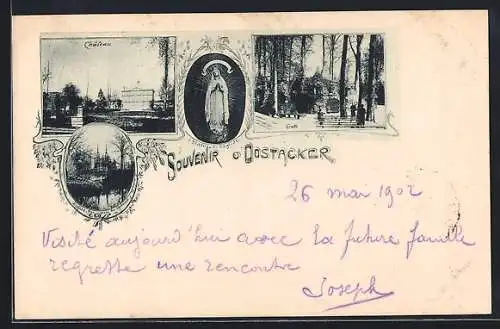 Château
Grotte
SOUVENIR D'OOSTACKER
26 mai 1902
Visité aujourd'hui avec la future famille
regrette une rencontre
Joseph